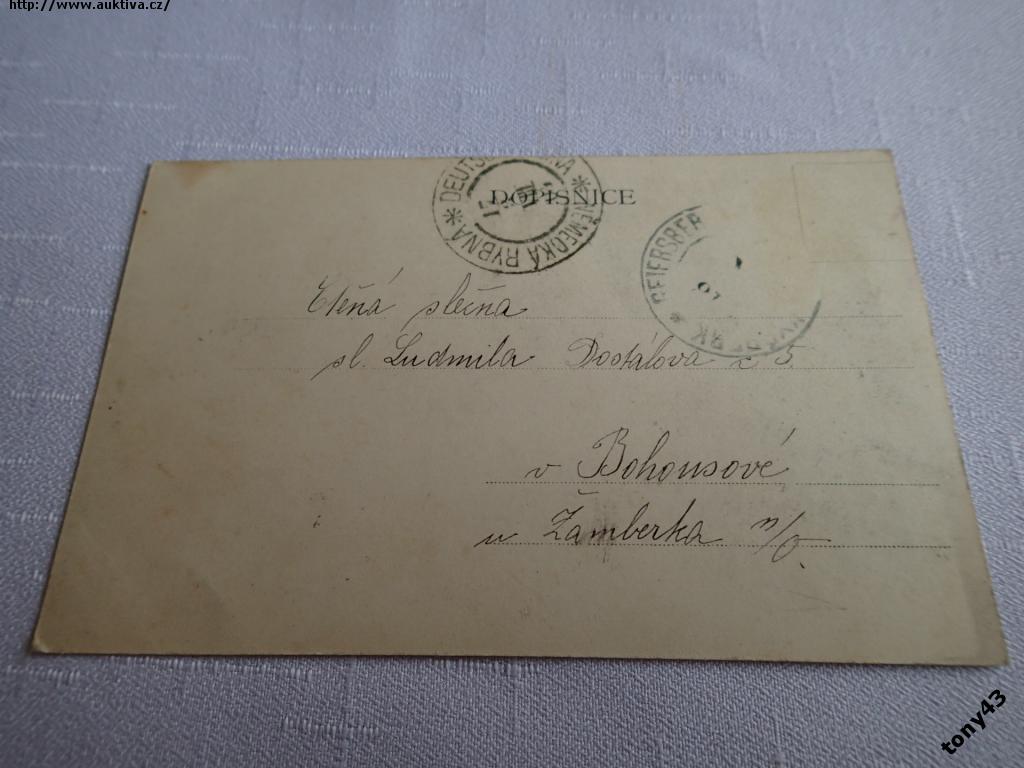 http://www.auktiva.cz/
DEUTSCH NA * NĚMECKÁ RYBNÁ *
DOPISNICE
GEIERSBER RK *
Ctěná slečna
sl. Ludmila Dostálova č 5.
v Bohousové
u Žamberka n/O.
tony43